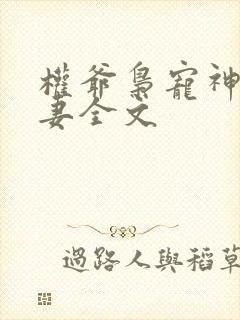 權爺梟寵神
妻全文
過路人與稻草